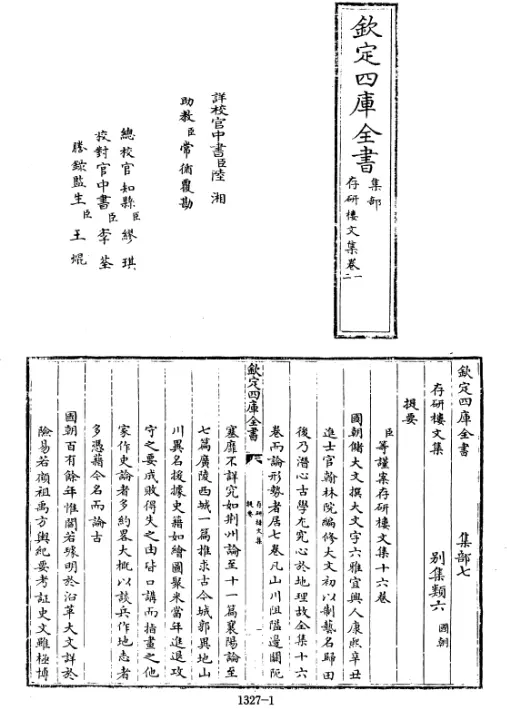 欽定四庫全書
集部
存研樓文集卷一二
詳校官中書臣陸湘
助教臣常循覆勘
總校官知縣臣繆琪
校對官中書臣李荃
謄錄監生臣王焜
欽定四庫全書 集部七
存研樓文集 別集類六 國朝
提要
臣等謹案存研樓文集十六卷
國朝儲大文撰大文字六雅宜興人康熙辛丑
進士官翰林院編修大文初以制藝名歸田
後乃潛心古學尤究心於地理故全集十六
卷而論形勢者居七卷凡山川阻隘邊關阨
欽定四庫全書
存研樓文集
提要
塞靡不詳究如荆州論至十一篇襄陽論至
七篇廣陵西城一篇推求古今城郭異地山
川異名援據史籍如繪圖聚米當年進退攻
守之要成敗得失之由皆口講而指畫之他
家作史論者多約畧大概以談兵作地志者
多憑藉今名而論古
國朝百有餘年惟閻若璩明於沿革大文詳於
險易若顧祖禹方輿紀要考証史文雖極博
1327-1